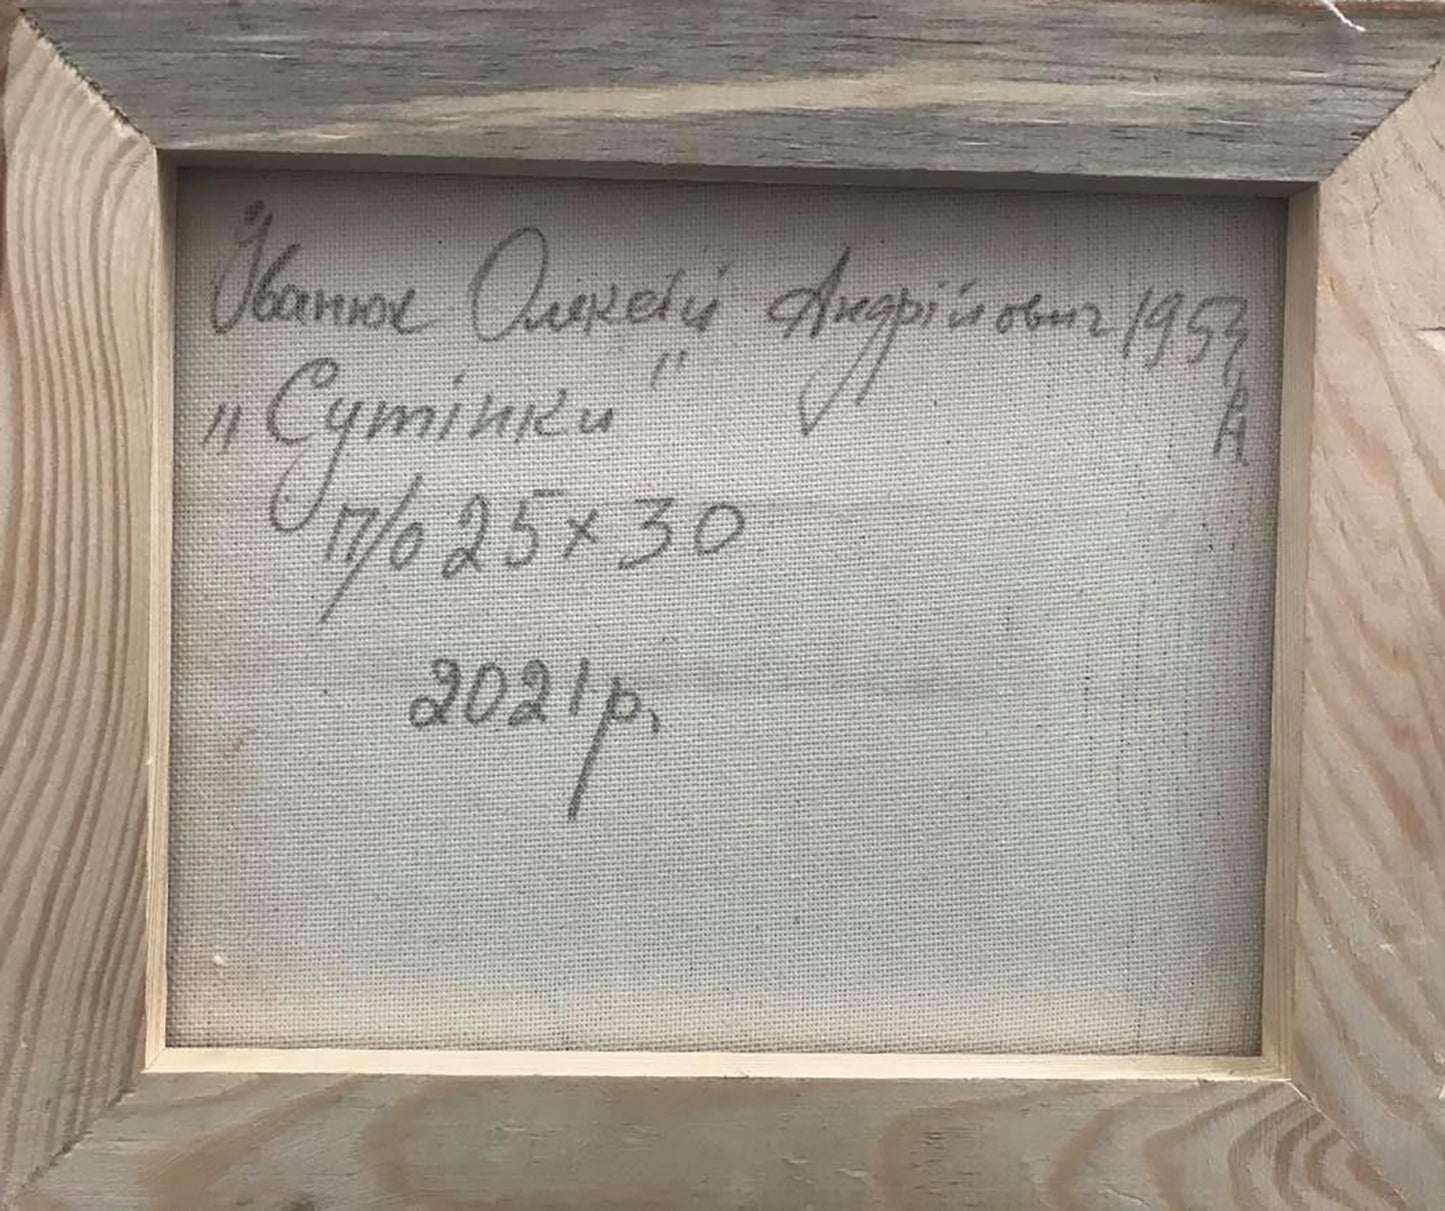 Іванюк Олексій Андрійович 1953
н.
„Сутінки"
п/о 25х30
2021р.